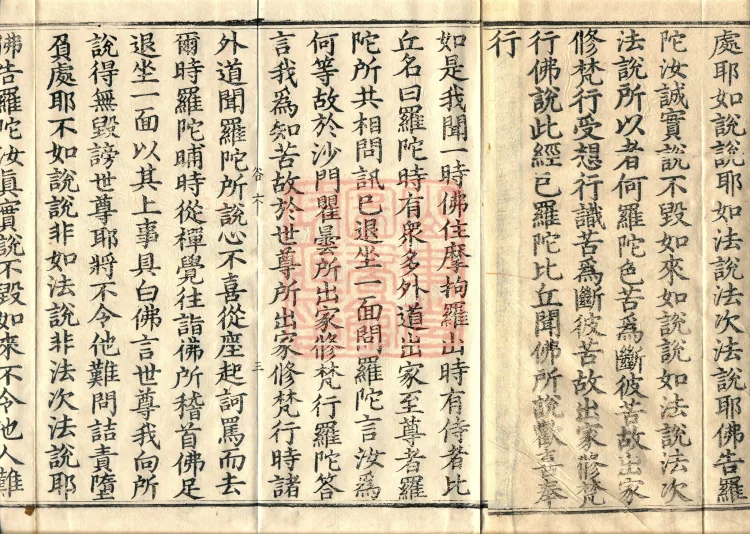 處耶如說說耶如法說法次法說耶佛告羅
陀汝誠實說不毀如來如說說如法說法次
法說所以者何羅陀色苦爲斷彼苦故出家
修梵行受想行識苦爲斷彼苦故出家修梵
行佛說此經已羅陀比丘聞佛所說歡喜奉
行
如是我聞一時佛住摩拘羅山時有侍者比
丘名曰羅陀時有衆多外道出家至尊者羅
陀所共相問訊已退坐一面問羅陀言汝爲
何等故於沙門瞿曇所出家修梵行羅陀答
言我爲知苦故於世尊所出家修梵行時諸
谷六 三
外道聞羅陀所說心不喜從座起訶罵而去
爾時羅陀晡時從禪覺往詣佛所稽首佛足
退坐一面以其上事具白佛言世尊我向所
說得無毀謗世尊耶將不令他難問詰責墮
負處耶不如說說非如法說非法次法說耶
佛告羅陀汝眞實說不毀如來不令他人難